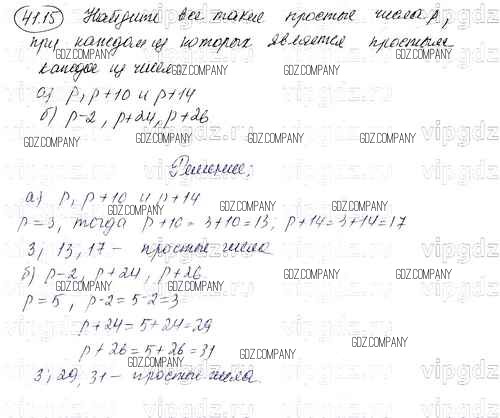 41.15 Найдите все такие простые числа p,
при каждом из которых является простым
каждое из чисел:
GDZ.COMPANY GDZ.COMPANY GDZ.COMPANY
а) p, p+10 и p+14
б) p-2, p+24, p+26
GDZ.COMPANY GDZ.COMPANY GDZ.COMPANY GDZ.COMPANY
Решение:
а) p, p+10 и p+14
GDZ.COMPANY GDZ.COMPANY GDZ.COMPANY GDZ.COMPANY
p=3, тогда p+10=3+10=13, p+14=3+14=17
3, 13, 17 - простые числа
б) p-2, p+24, p+26
GDZ.COMPANY GDZ.COMPANY GDZ.COMPANY GDZ.COMPANY
p=5, p-2=5-2=3
p+24=5+24=29
p+26=5+26=31
GDZ.COMPANY GDZ.COMPANY GDZ.COMPANY
3, 29, 31 - простые числа.